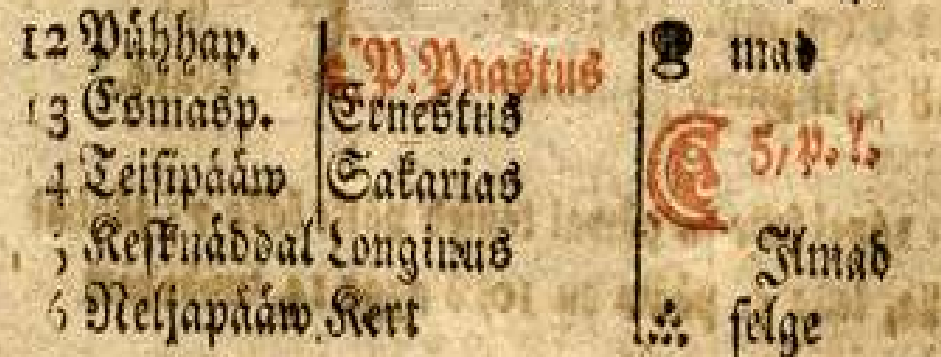 12 Pühhap. P. Paastus mad
13 Esmasp. Ernestus 5, p. l.
4 Teisipääw Sakarias
5 Kesknäddal Longinus Ilmad
6 Neljapääw Kert selge